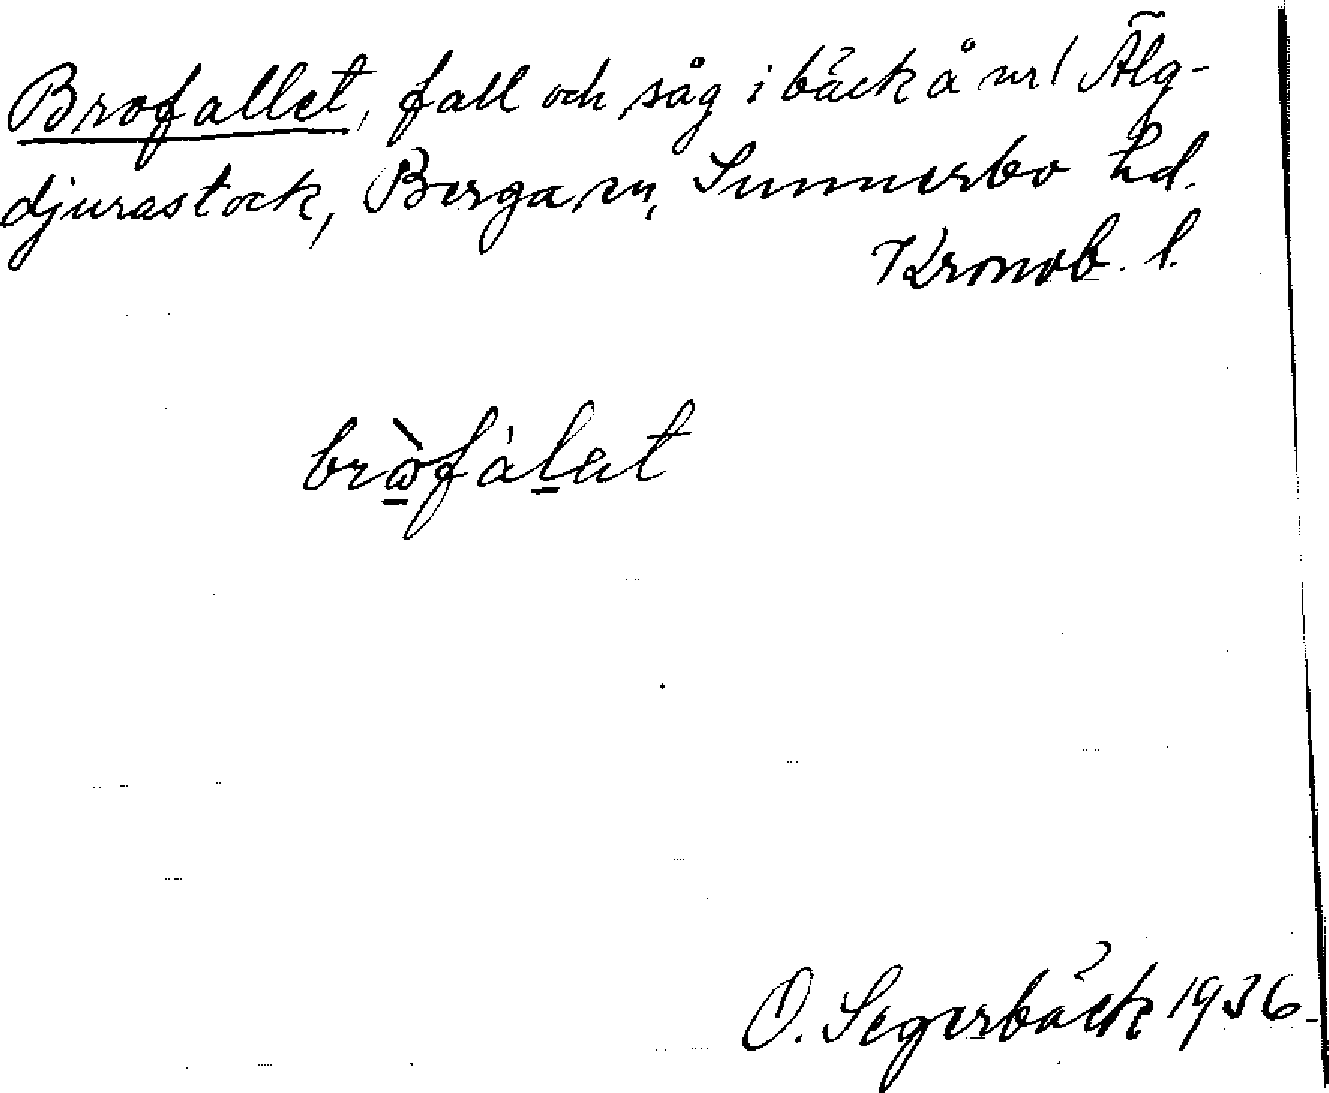 Brofallet, fall och såg i bäck å nr 1 Älg-
djurastock, Berga sn, Sunnerbo hd.
Kronob. l.
bròfàlet
O. Segerbäck 1936